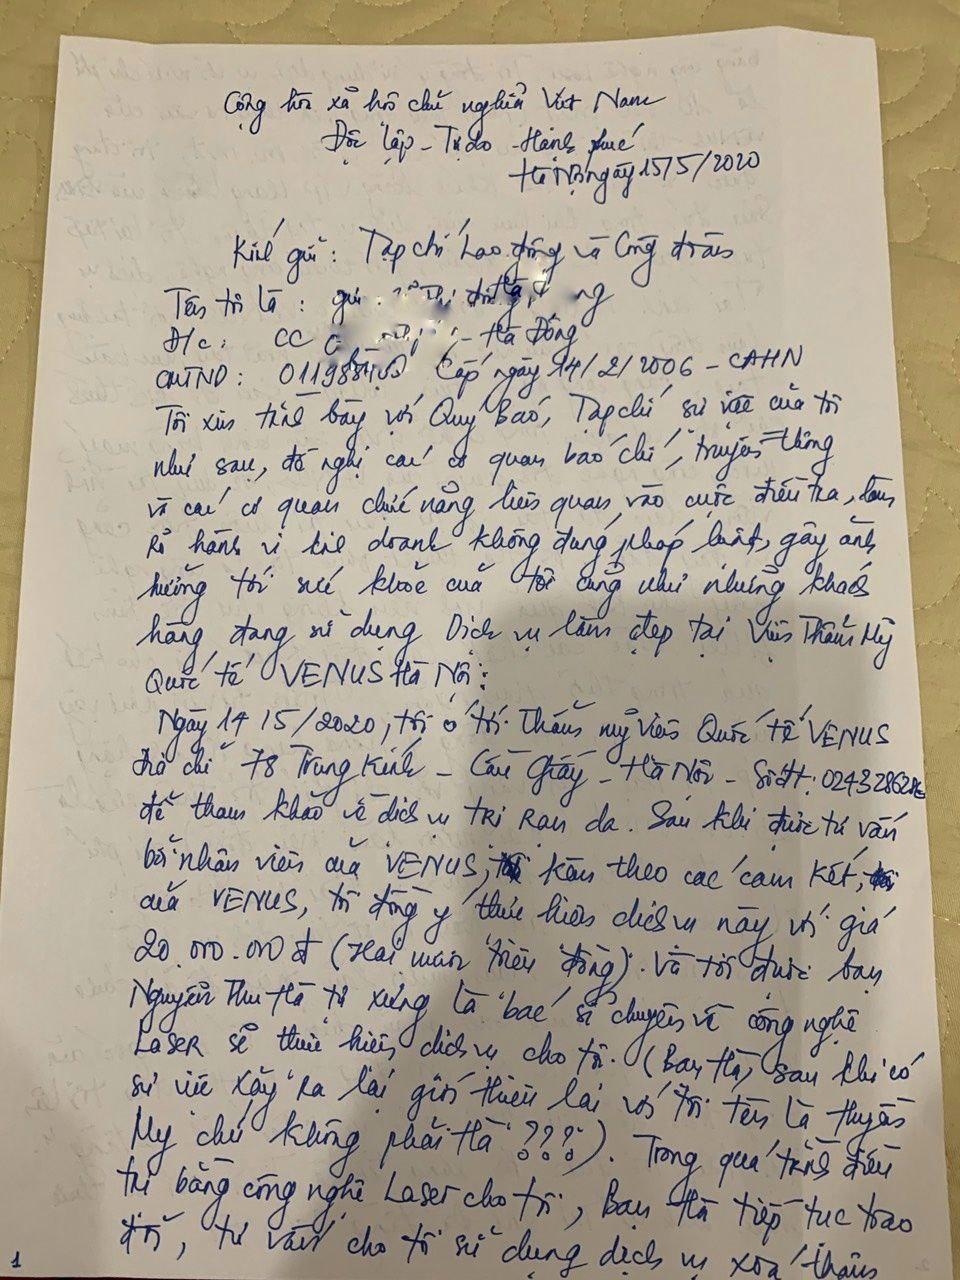 Cộng hòa xã hội chủ nghĩa Việt Nam
Độc lập - Tự do - Hạnh phúc
Hà Nội ngày 15/5/2020
Kính gửi: Tạp chí Lao động và Công đoàn
Tên tôi là:
Đ/c: CC - Hà Đông
CMTND: Cấp ngày 14/2/2006 - CAHN
Tôi xin trình bày với Quý Báo, Tạp chí sự việc của tôi
như sau, đề nghị các cơ quan báo chí, truyền thông
và các cơ quan chức năng liên quan vào cuộc điều tra, làm
rõ hành vi kinh doanh không đúng pháp luật, gây ảnh
hưởng tới sức khỏe của tôi cũng như những khách
hàng đang sử dụng Dịch vụ làm đẹp tại Viện Thẩm Mỹ
Quốc tế VENUS Hà Nội:
Ngày 14/5/2020, tôi có tới Thẩm mỹ viện Quốc tế VENUS
địa chỉ 78 Trung Kính - Cầu Giấy - Hà Nội - Số đt:
để tham khảo về dịch vụ trị rạn da. Sau khi được tư vấn
bởi nhân viên của VENUS, kèm theo các cam kết,
của VENUS, tôi đồng ý thực hiện dịch vụ này với giá
20.000.000đ (Hai mươi triệu đồng). Và tôi được bạn
Nguyễn Thu Hà tự xưng là bác sĩ chuyên về công nghệ
Laser sẽ thực hiện dịch vụ cho tôi. (Bạn Hà, sau khi có
sự việc xảy ra lại giới thiệu lại với tôi tên là Huyền
My chứ không phải Hà ???). Trong quá trình điều
trị bằng công nghệ Laser cho tôi, Bạn Hà tiếp tục trao
đổi, tư vấn cho tôi sử dụng dịch vụ xoá thâm
1